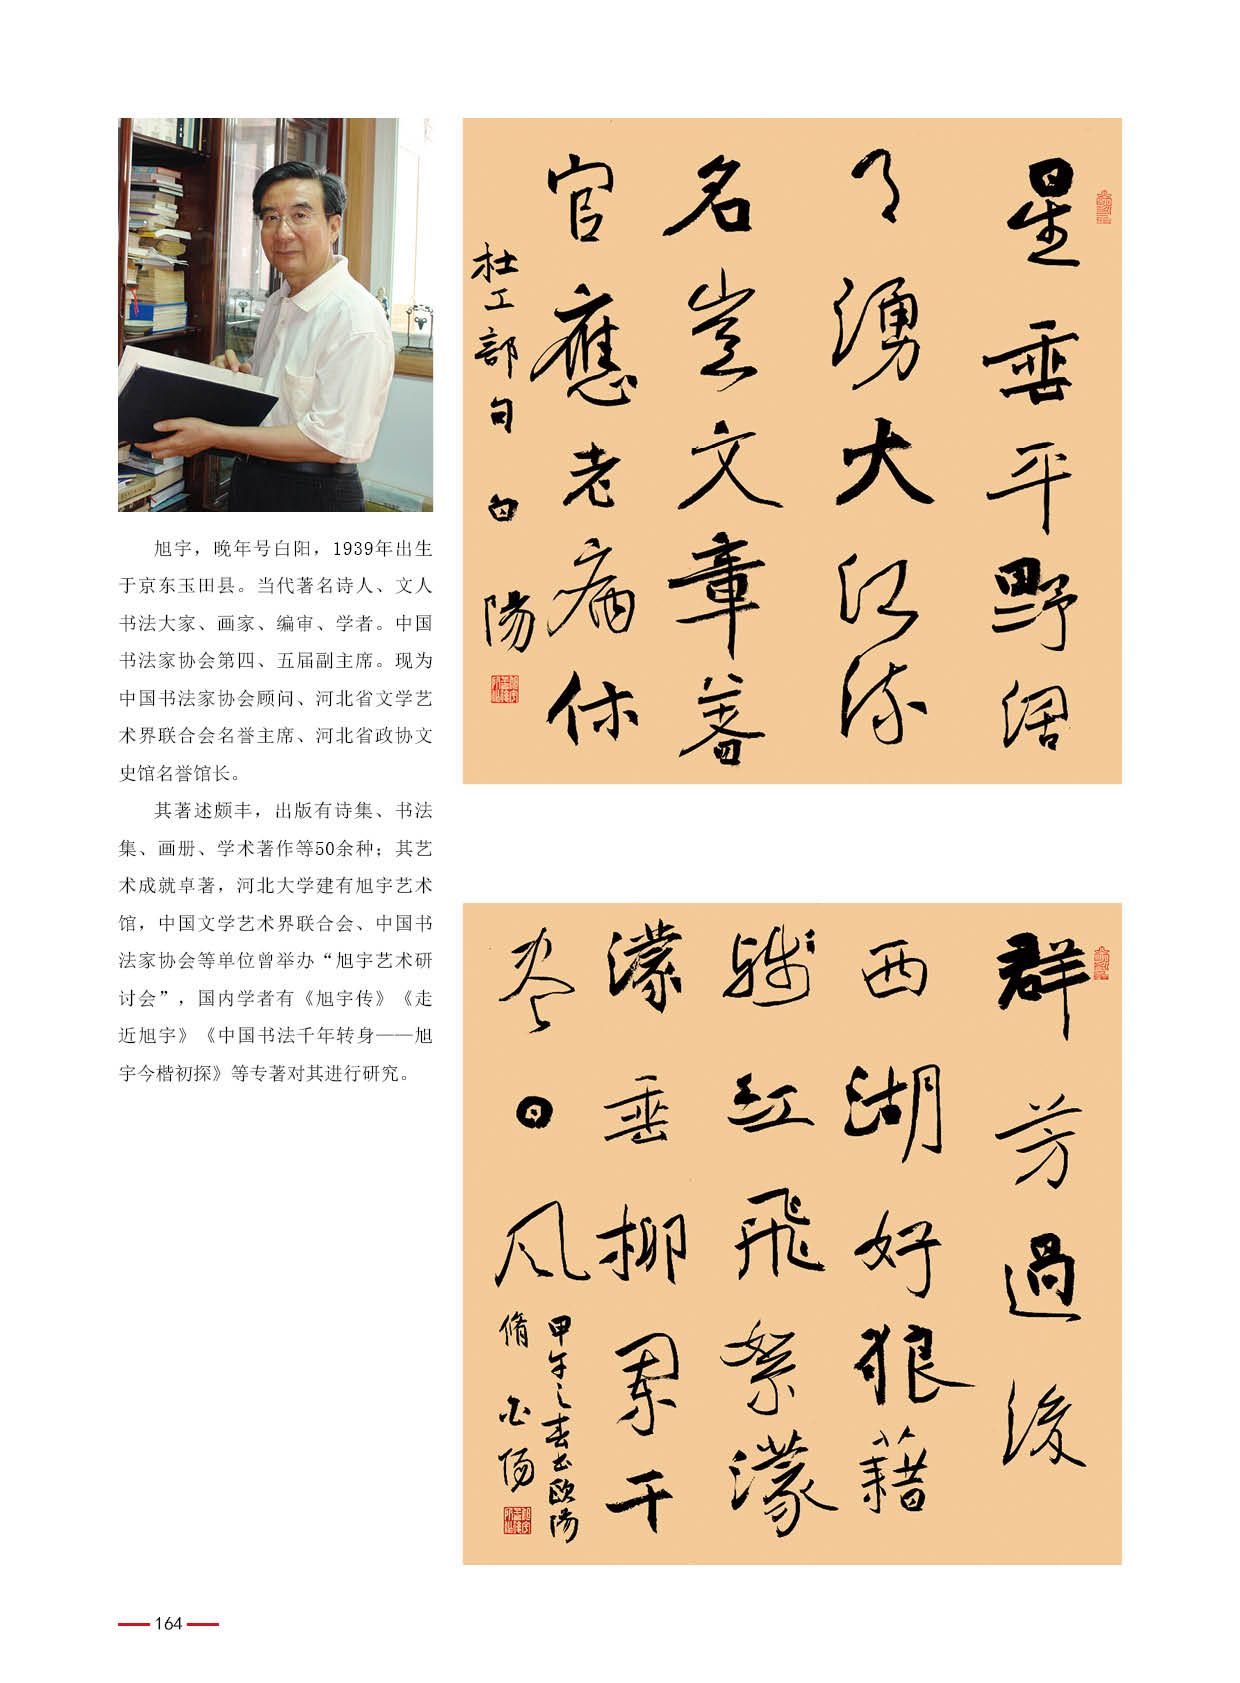 旭宇，晚年号白阳，1939年出生
于京东玉田县。当代著名诗人、文人
书法大家、画家、编审、学者。中国
书法家协会第四、五届副主席。现为
中国书法家协会顾问、河北省文学艺
术界联合会名誉主席、河北省政协文
史馆名誉馆长。
其著述颇丰，出版有诗集、书法
集、画册、学术著作等50余种；其艺
术成就卓著，河北大学建有旭宇艺术
馆，中国文学艺术界联合会、中国书
法家协会等单位曾举办“旭宇艺术研
讨会”，国内学者有《旭宇传》《走
近旭宇》《中国书法千年转身——旭
宇今楷初探》等专著对其进行研究。
星垂平野阔
月湧大江流
名豈文章著
官應老病休
杜工部句 白陽
群芳過後
西湖好狼藉
殘紅飛絮濛
濛垂柳闌干
尽日风
甲午之春书歐陽
脩 白陽
164